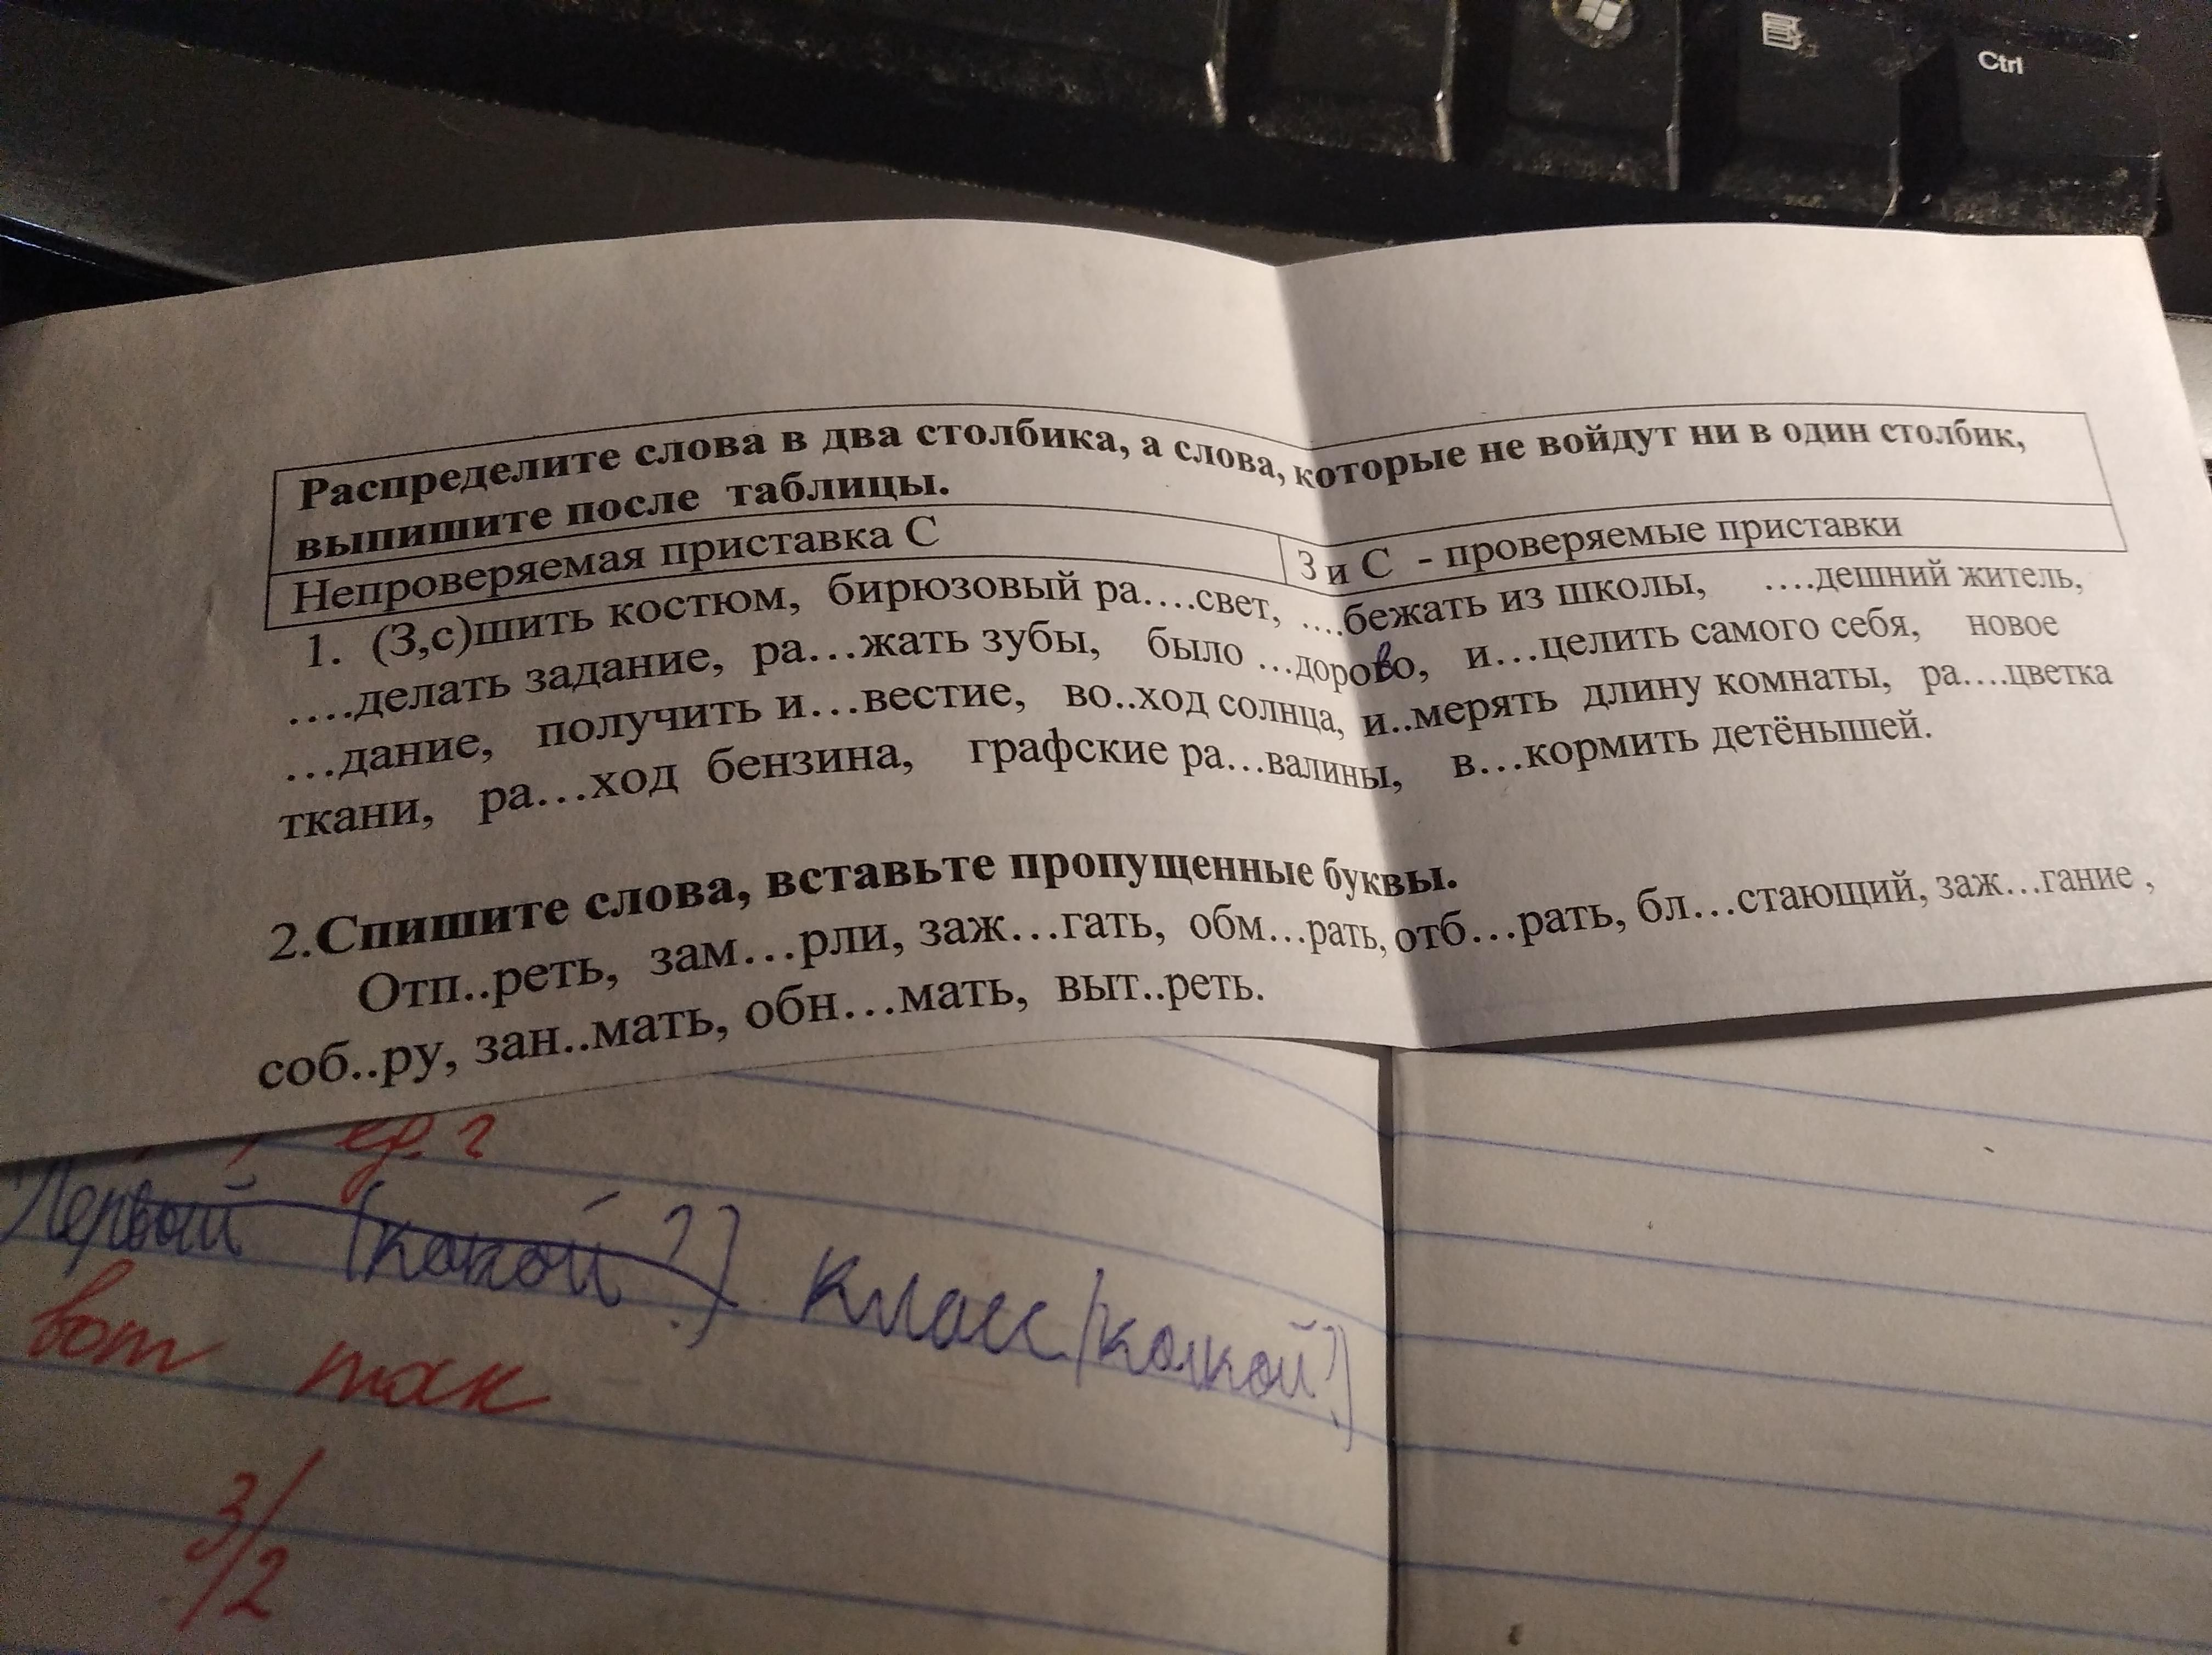 Ctrl
Распределите слова в два столбика, а слова, которые не войдут ни в один столбик,
выпишите после таблицы.
Непроверяемая приставка С З и С - проверяемые приставки
1. (З,с)шить костюм, бирюзовый ра….свет, ….бежать из школы, ….дешний житель,
….делать задание, ра…жать зубы, было …дорово, и…целить самого себя, новое
…дание, получить и…вестие, во..ход солнца, и..мерять длину комнаты, ра….цветка
ткани, ра…ход бензина, графские ра…валины, в…кормить детёнышей.
2.Спишите слова, вставьте пропущенные буквы.
Отп..реть, зам…рли, заж…гать, обм…рать, отб…рать, бл…стающий, заж…гание ,
соб..ру, зан..мать, обн…мать, выт..реть.
ед. г
Первый (какой?) Класс (какой?)
вот так
3/2